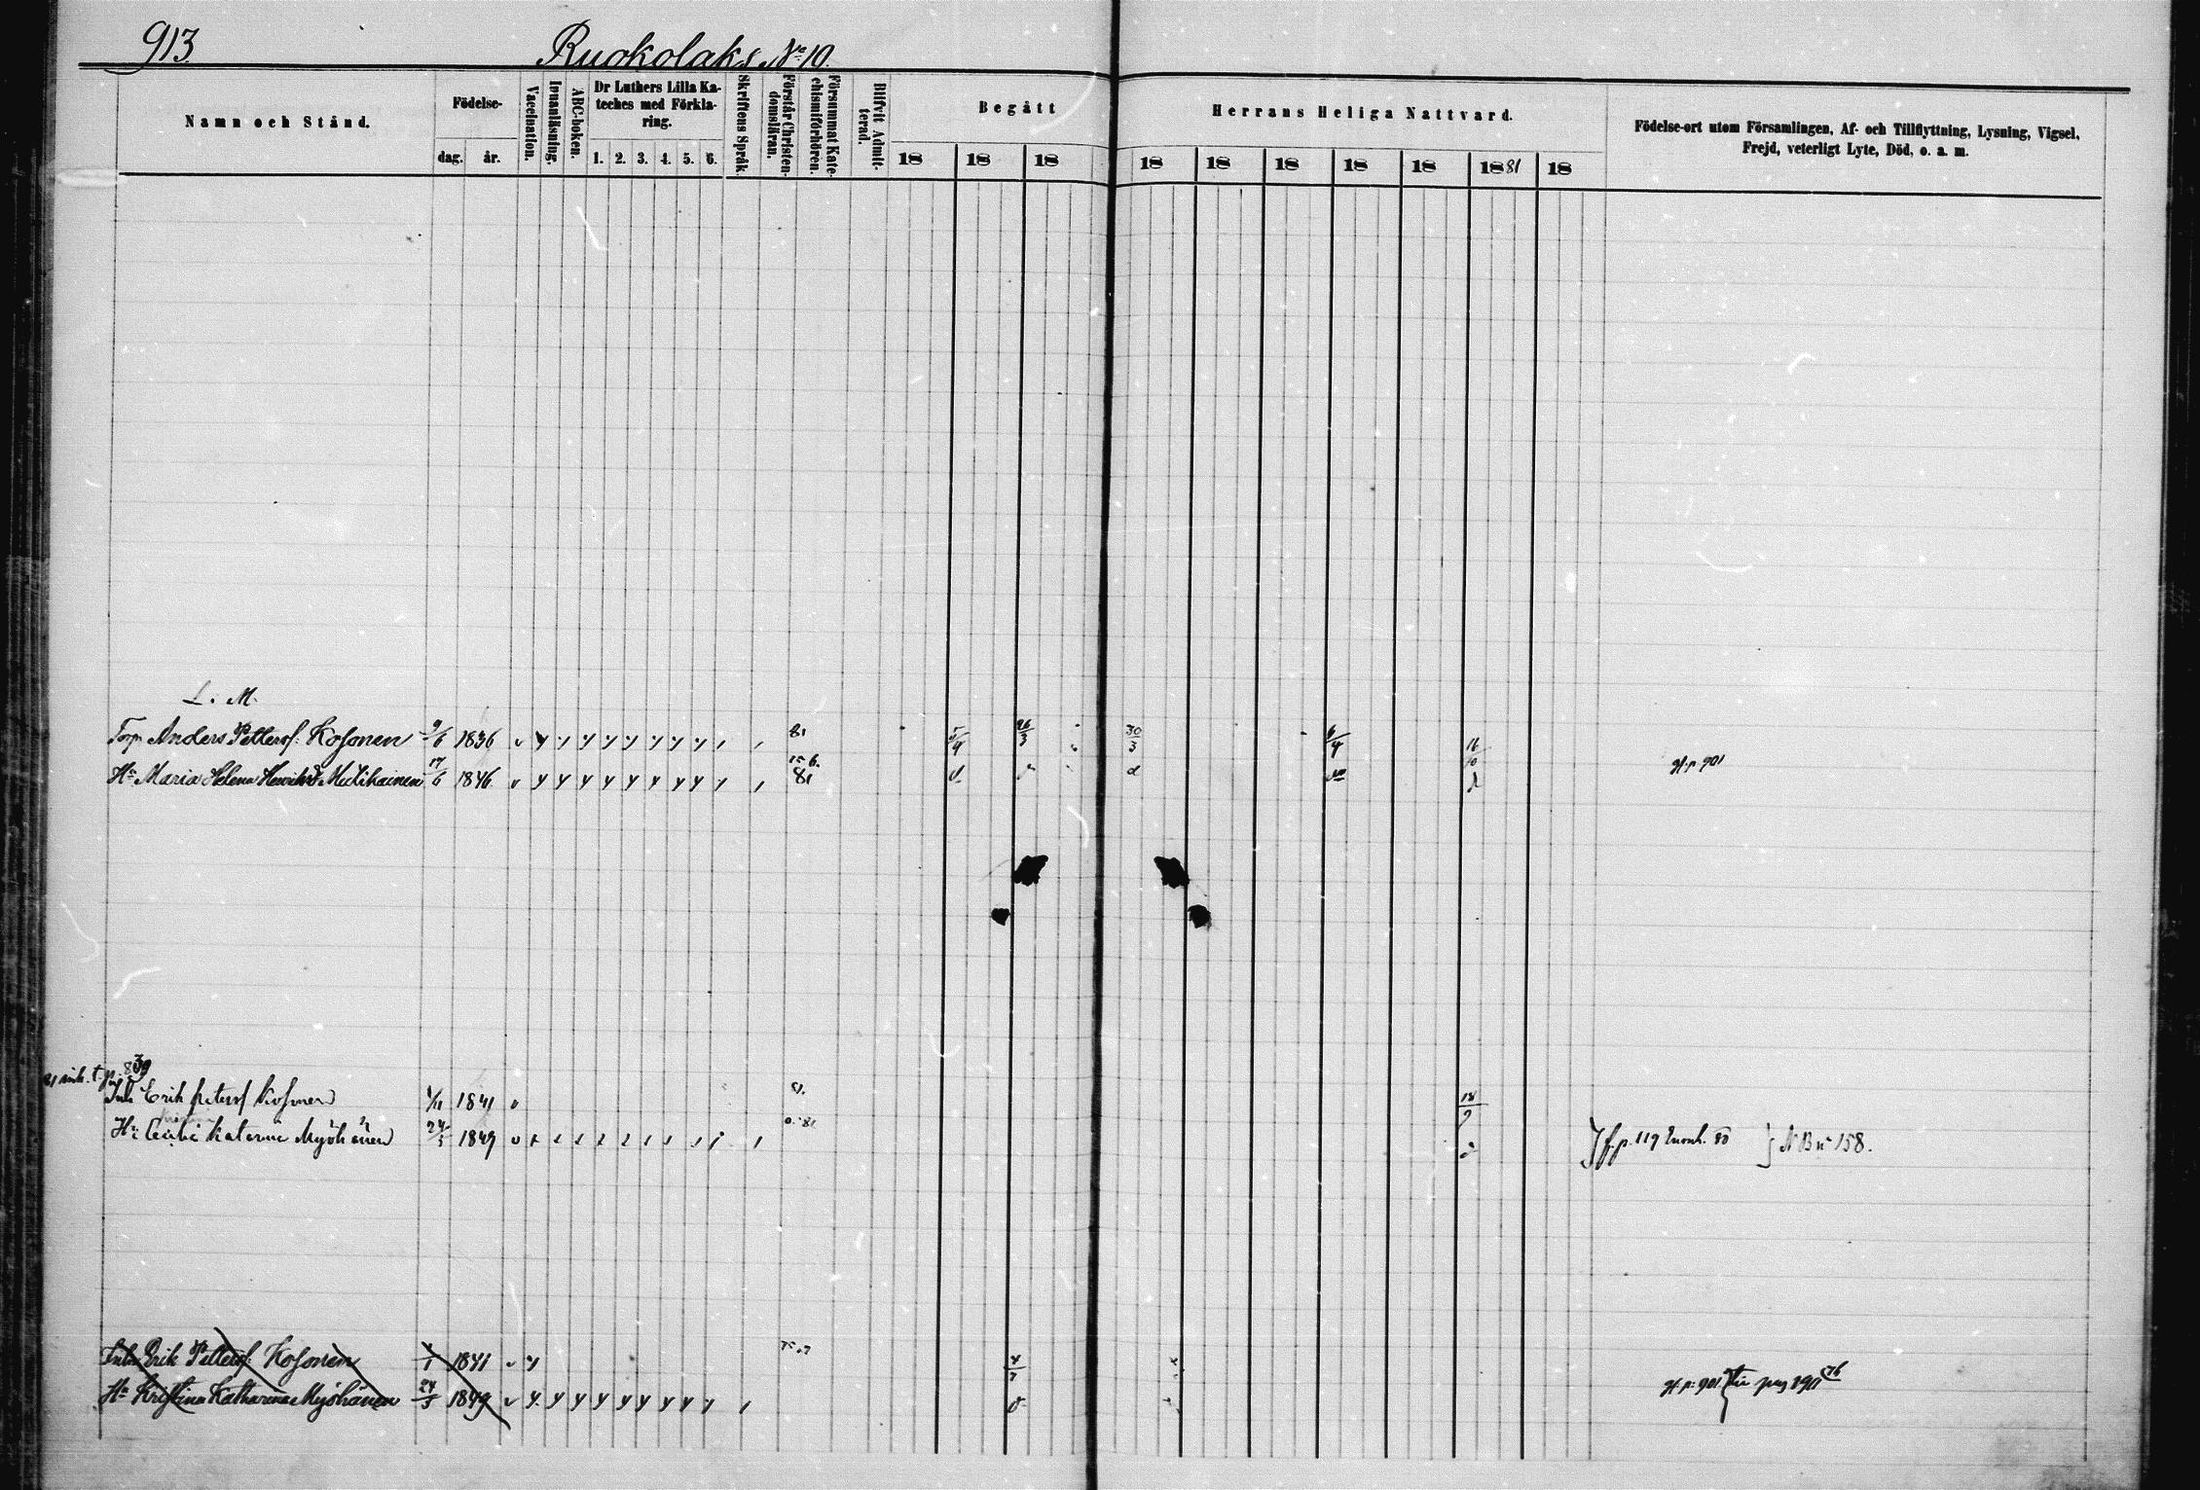 913
Ruokolaks No 10.
Namn och Stånd.
Födelse-
dag.
år.
Vaccination.
Innanläsning.
ABC-boken.
Dr Luthers Lilla Ka-
teches med Förkla-
ring.
1. 2. 3. 4. 5. 6.
Skriftens Språk.
Förstår Christen-
domsläran.
Försummat Kate-
chismiförhören.
Blifvit Admit-
terad.
Begått
18 18 18
Herrans Heliga Nattvard.
18 18 18 18 18 1881 18
Födelse-ort utom Församlingen, Af- och Tillflyttning, Lysning, Vigsel,
Frejd, veterligt Lyte, Död, o. a. m.
L. M.
Torp Anders Pettersf. Kosonen 9/6 1836 81 5/4 26/3 30/3 6/4 16/10
Hu Maria Helena 17/6 1846 81
p. 901
t. p. 839
Inh Erik Kosonen 1841 81. 18/9
Hu Katarina Myöhänen 24/3 1849 81
f. p. 119
NB no 158.
Inh Erik Pettersf. Kosonen 1841
Hu Kristina Katharina Myöhänen 24/3 1849
p. 901